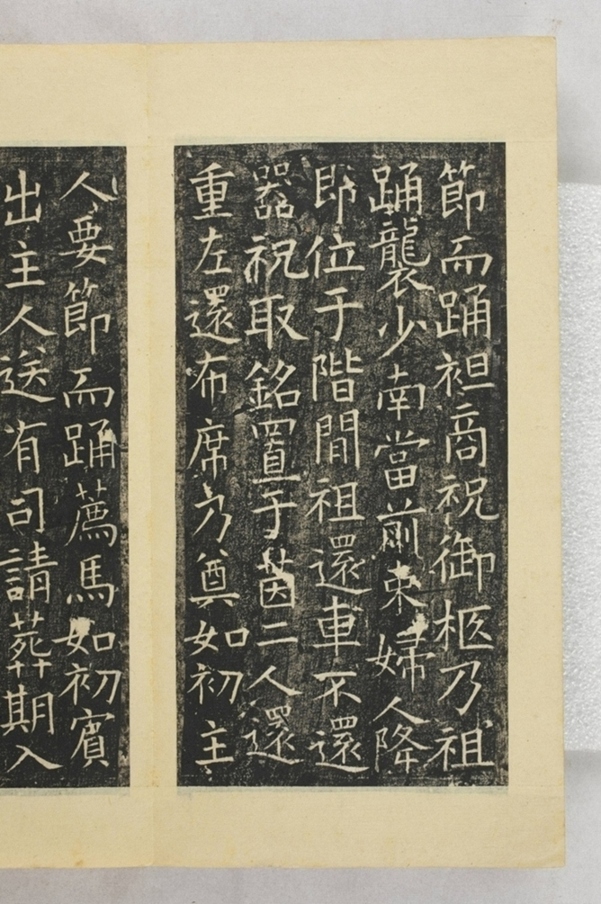 節而踊袒商祝御柩乃祖
踊襲少南當前束婦人降
即位于階間祖還車不還
器祝取銘置于茵二人還
重左還布席乃奠如初主
人要節而踊薦馬如初賓
出主人送有司請葬期入